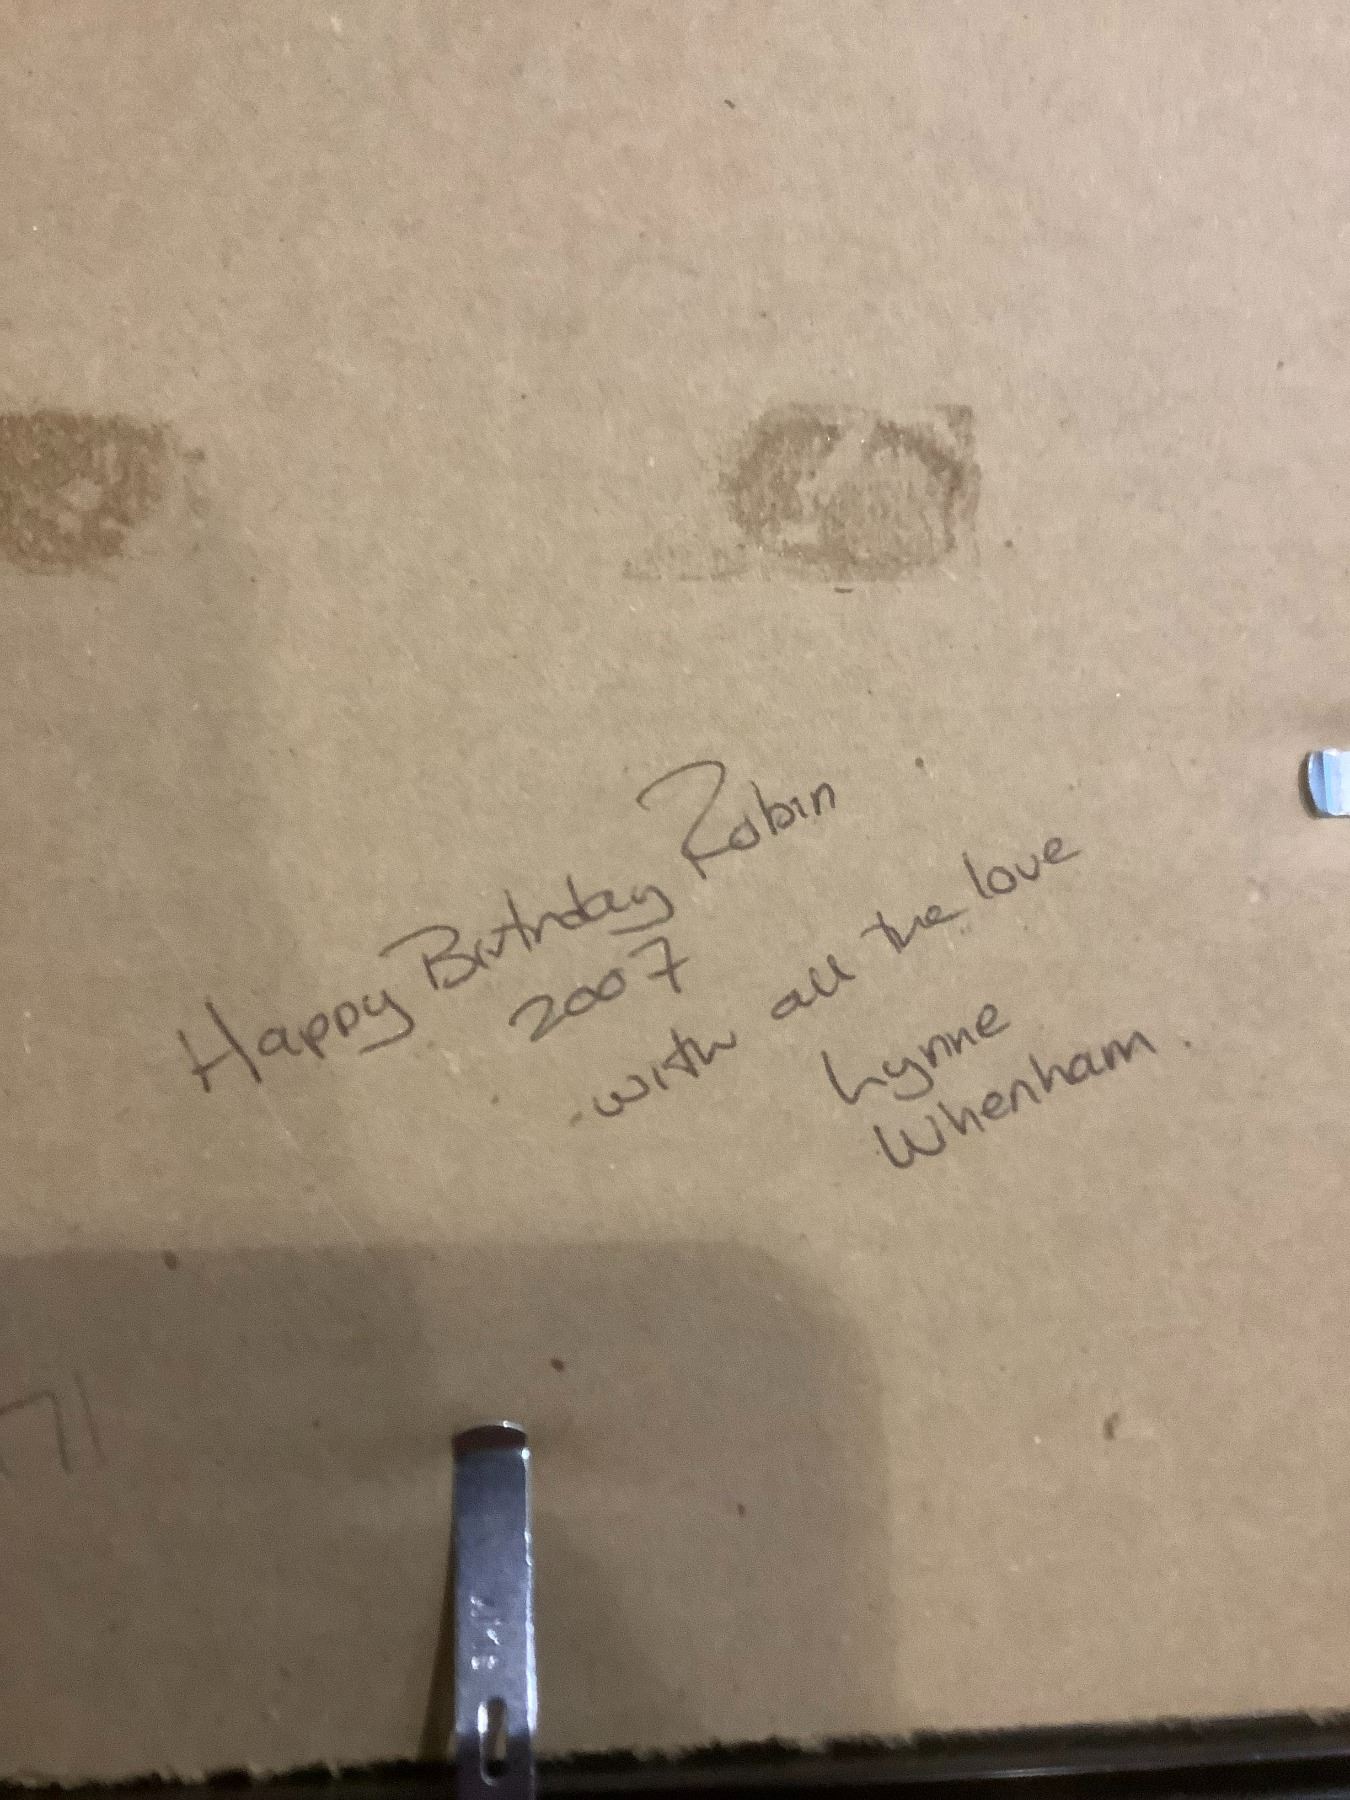 Happy Birthday Robin
2007
with all the love
Lynne
Whenham.